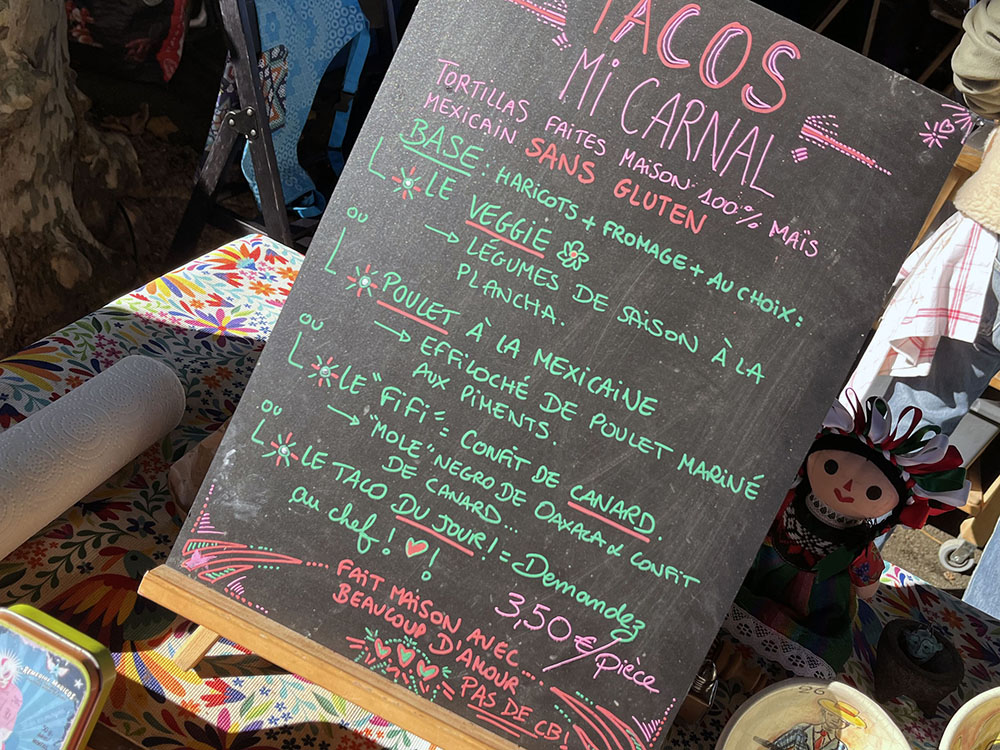 TACOS
MI CARNAL
TORTILLAS FAITES MAISON 100% MAÏS
MEXICAIN SANS GLUTEN
BASE: HARICOTS + FROMAGE + AU CHOIX:
LE VEGGIE
→ LÉGUMES DE SAISON À LA
PLANCHA.
OU
POULET À LA MEXICAINE
→ EFFILOCHÉ DE POULET MARINÉ
AUX PIMENTS.
OU
LE "FIFI" = CONFIT DE CANARD.
→ "MOLE" NEGRO DE OAXACA & CONFIT
DE CANARD...
OU
LE TACO DU JOUR! = Demandez
au chef! !
3,50€/pièce
FAIT MAISON AVEC...
BEAUCOUP D'AMOUR
PAS DE CB!
26